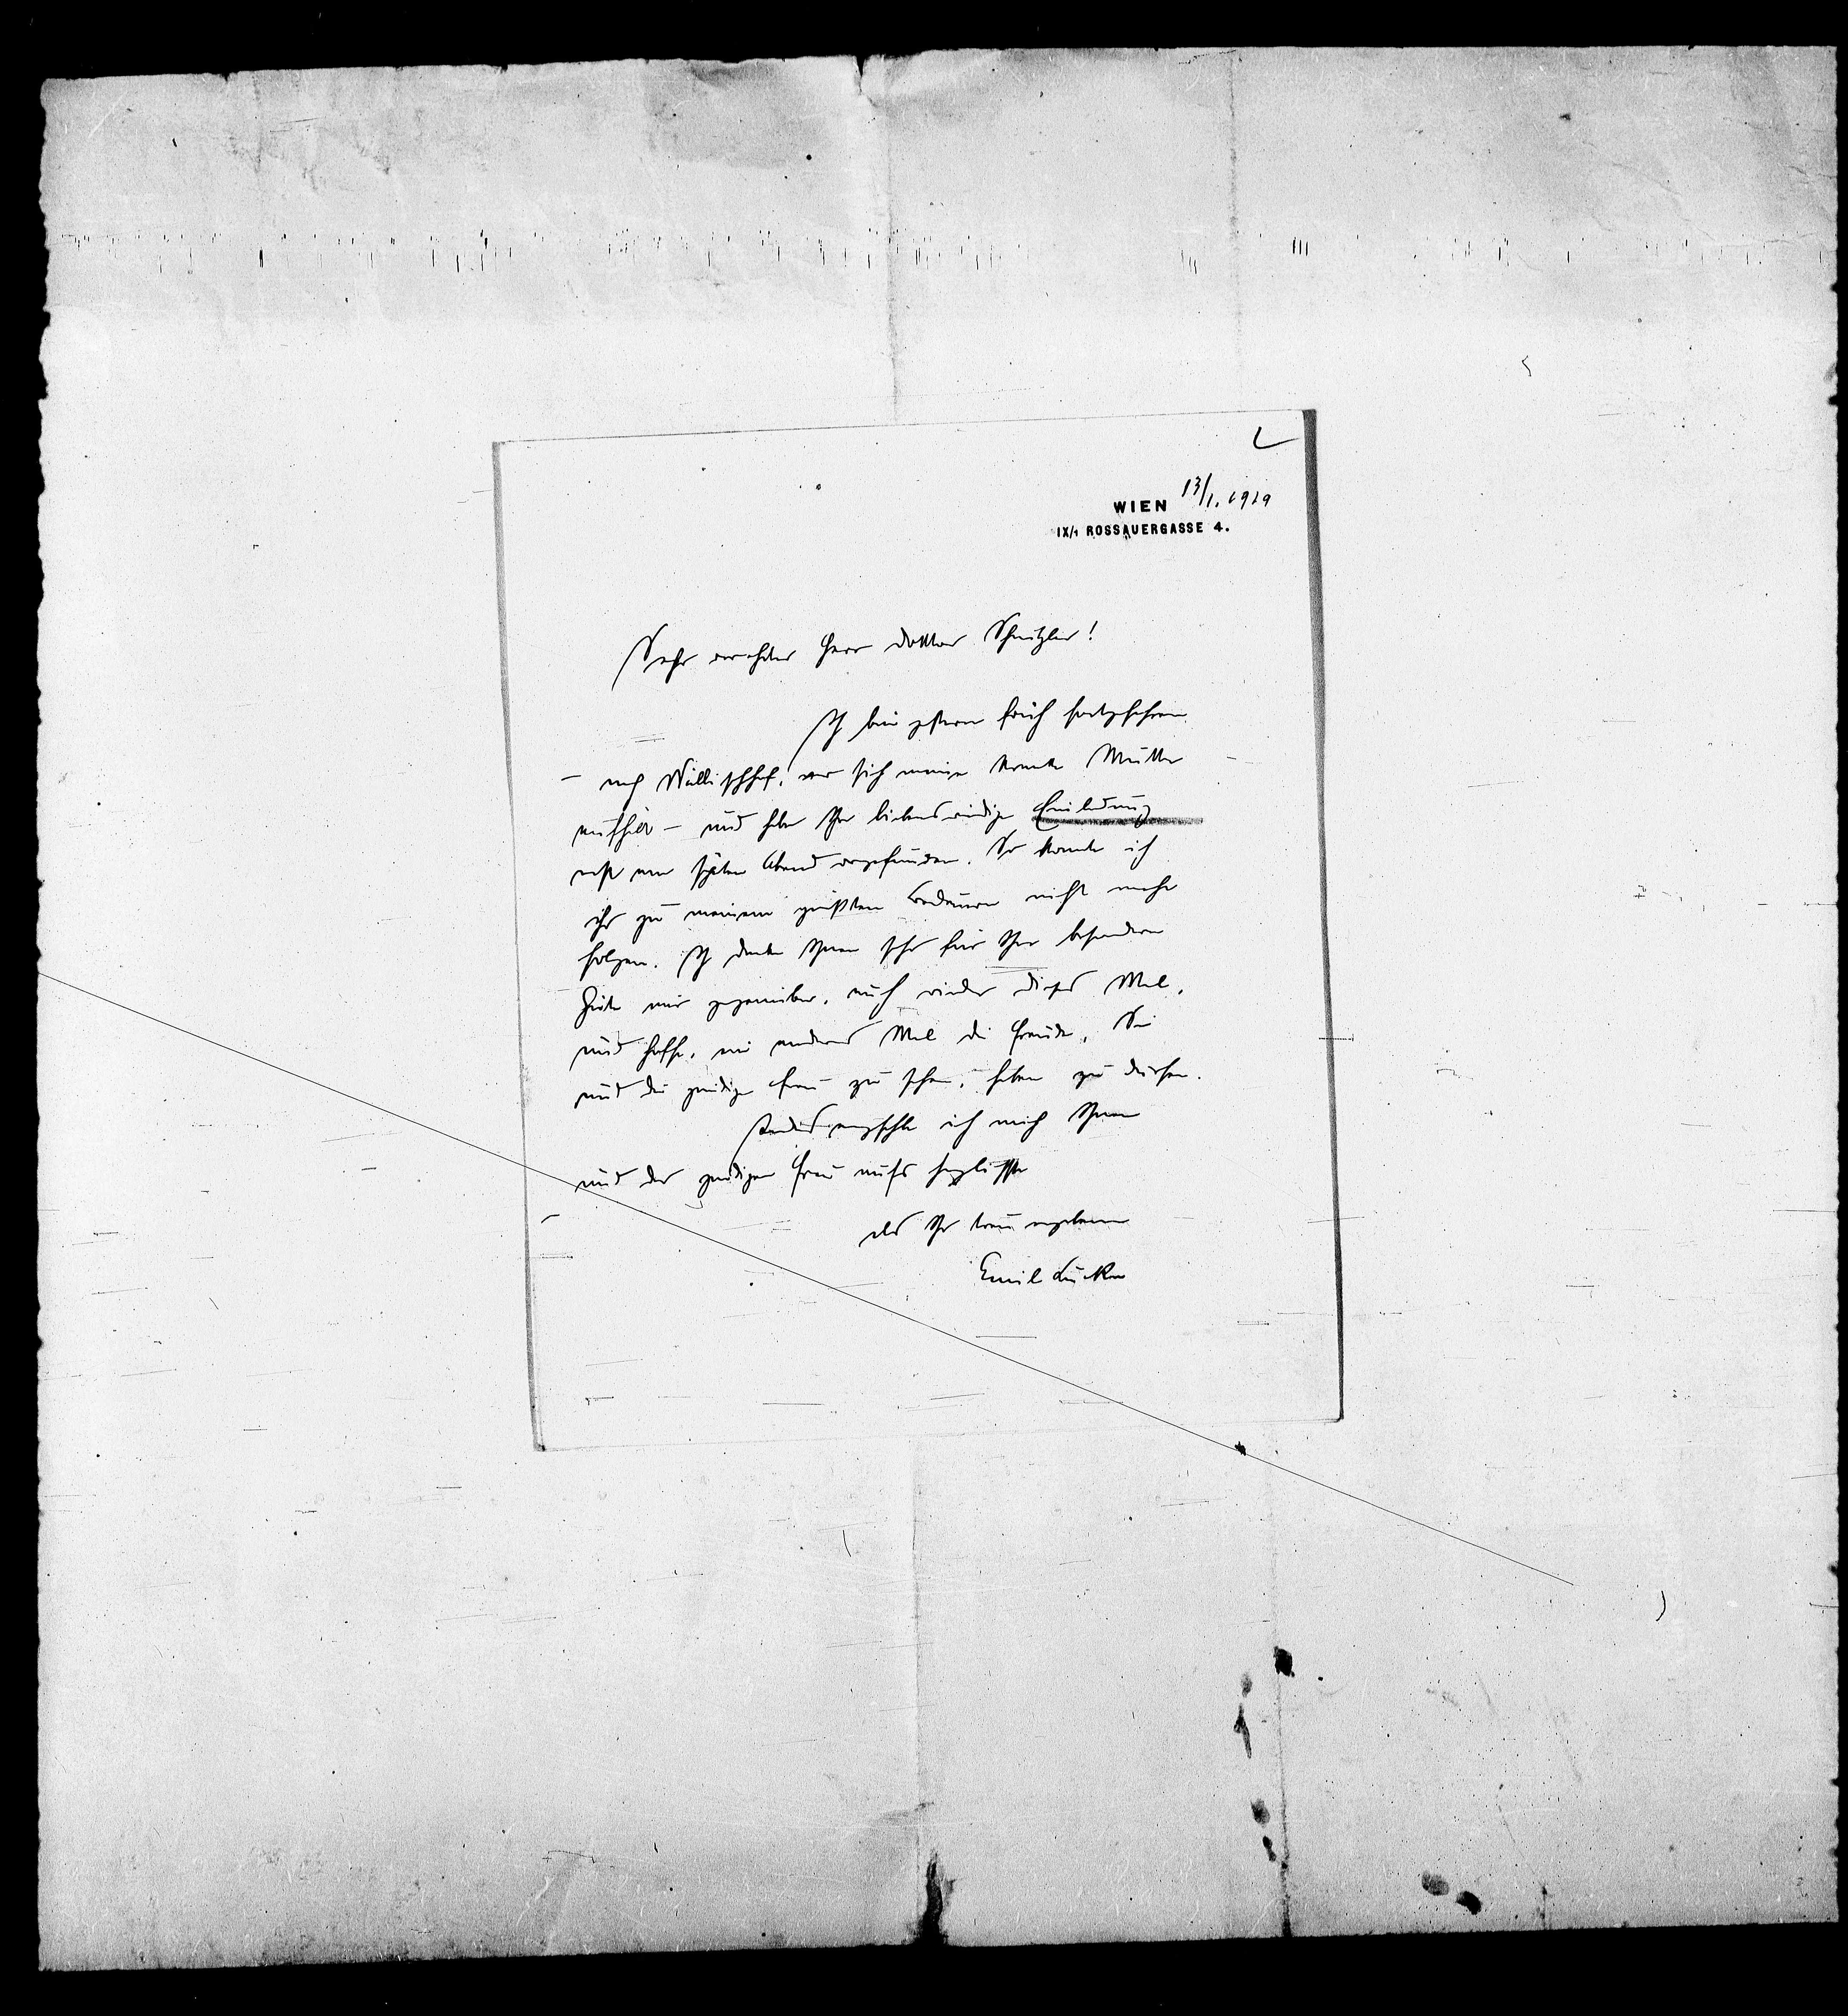 WIEN 13/1. 1919
IX/1 ROSSAUERGASSE 4.
Sehr verehrter Herr Doktor Schnitzler!
Ich bin gestern früh fortgefahren
– nach Wällischhof, wo sich meine kranke Mutter
aufhält – und habe Ihre liebenswürdige Einladung
erst am späten Abend vorgefunden. So konnte ich
ihr zu meinem größten Bedauern nicht mehr
folgen. Ich danke Ihnen sehr für Ihre besondere
Güte mir gegenüber, auch wieder dieses Mal,
und hoffe, ein anderes Mal die Freude, Sie
und die gnädige Frau zu sehen, haben zu dürfen.
empfehle ich mich Ihnen
und der gnädigen Frau aufs herzlichste
als Ihr treu ergebener
Emil Lucka